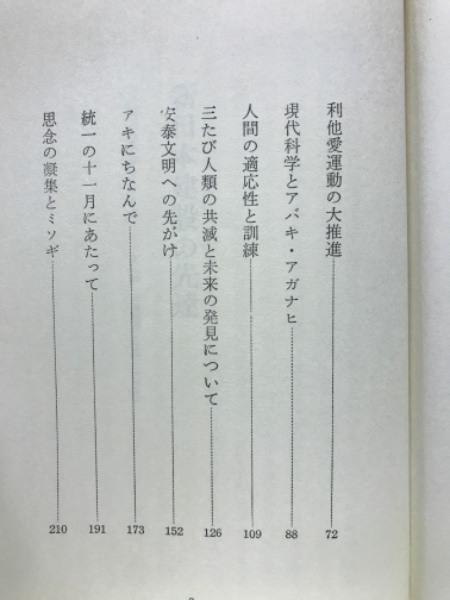 利他愛運動の大推進 72
現代科学とアバキ・アガナヒ 88
人間の適応性と訓練 109
三たび人類の共滅と未来の発見について 126
安泰文明への先がけ 152
アキにちなんで 173
統一の十一月にあたって 191
思念の凝集とミソギ 210